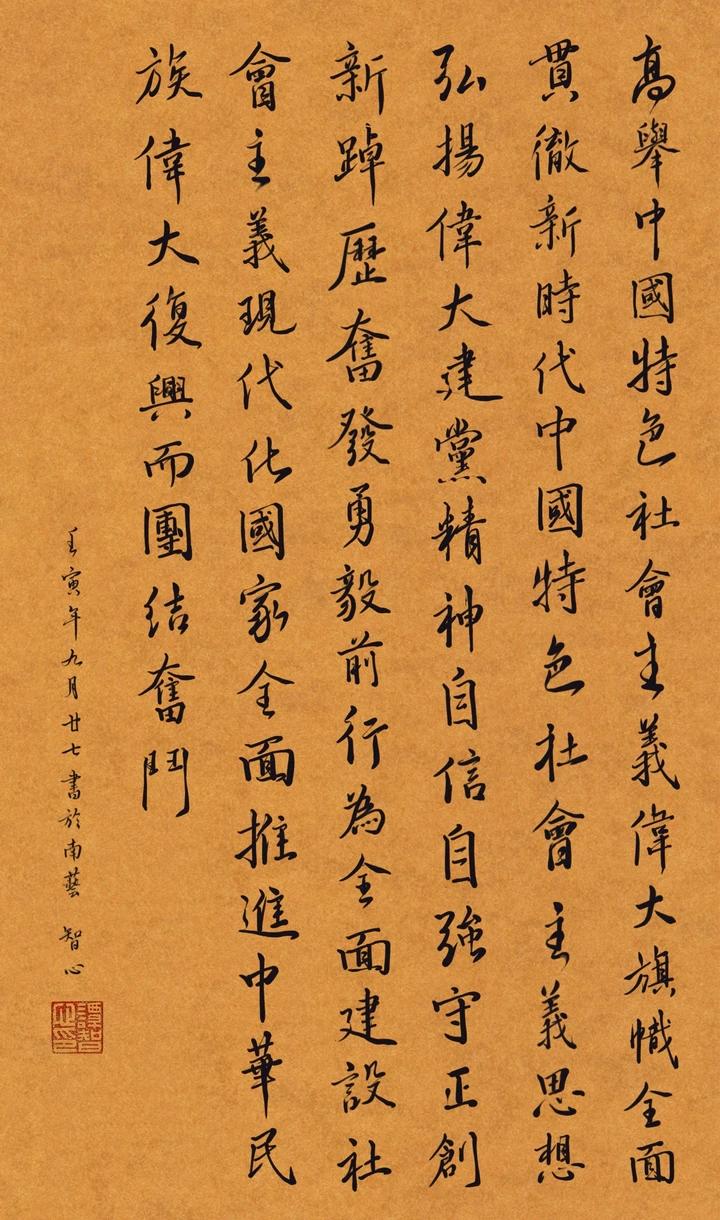 高舉中國特色社會主義偉大旗幟全面
貫徹新時代中國特色社會主義思想
弘揚偉大建黨精神自信自強守正創
新踔歷奮發勇毅前行為全面建設社
會主義現代化國家全面推進中華民
族偉大復興而團结奮鬥
壬寅年九月廿七書於南藝 智心